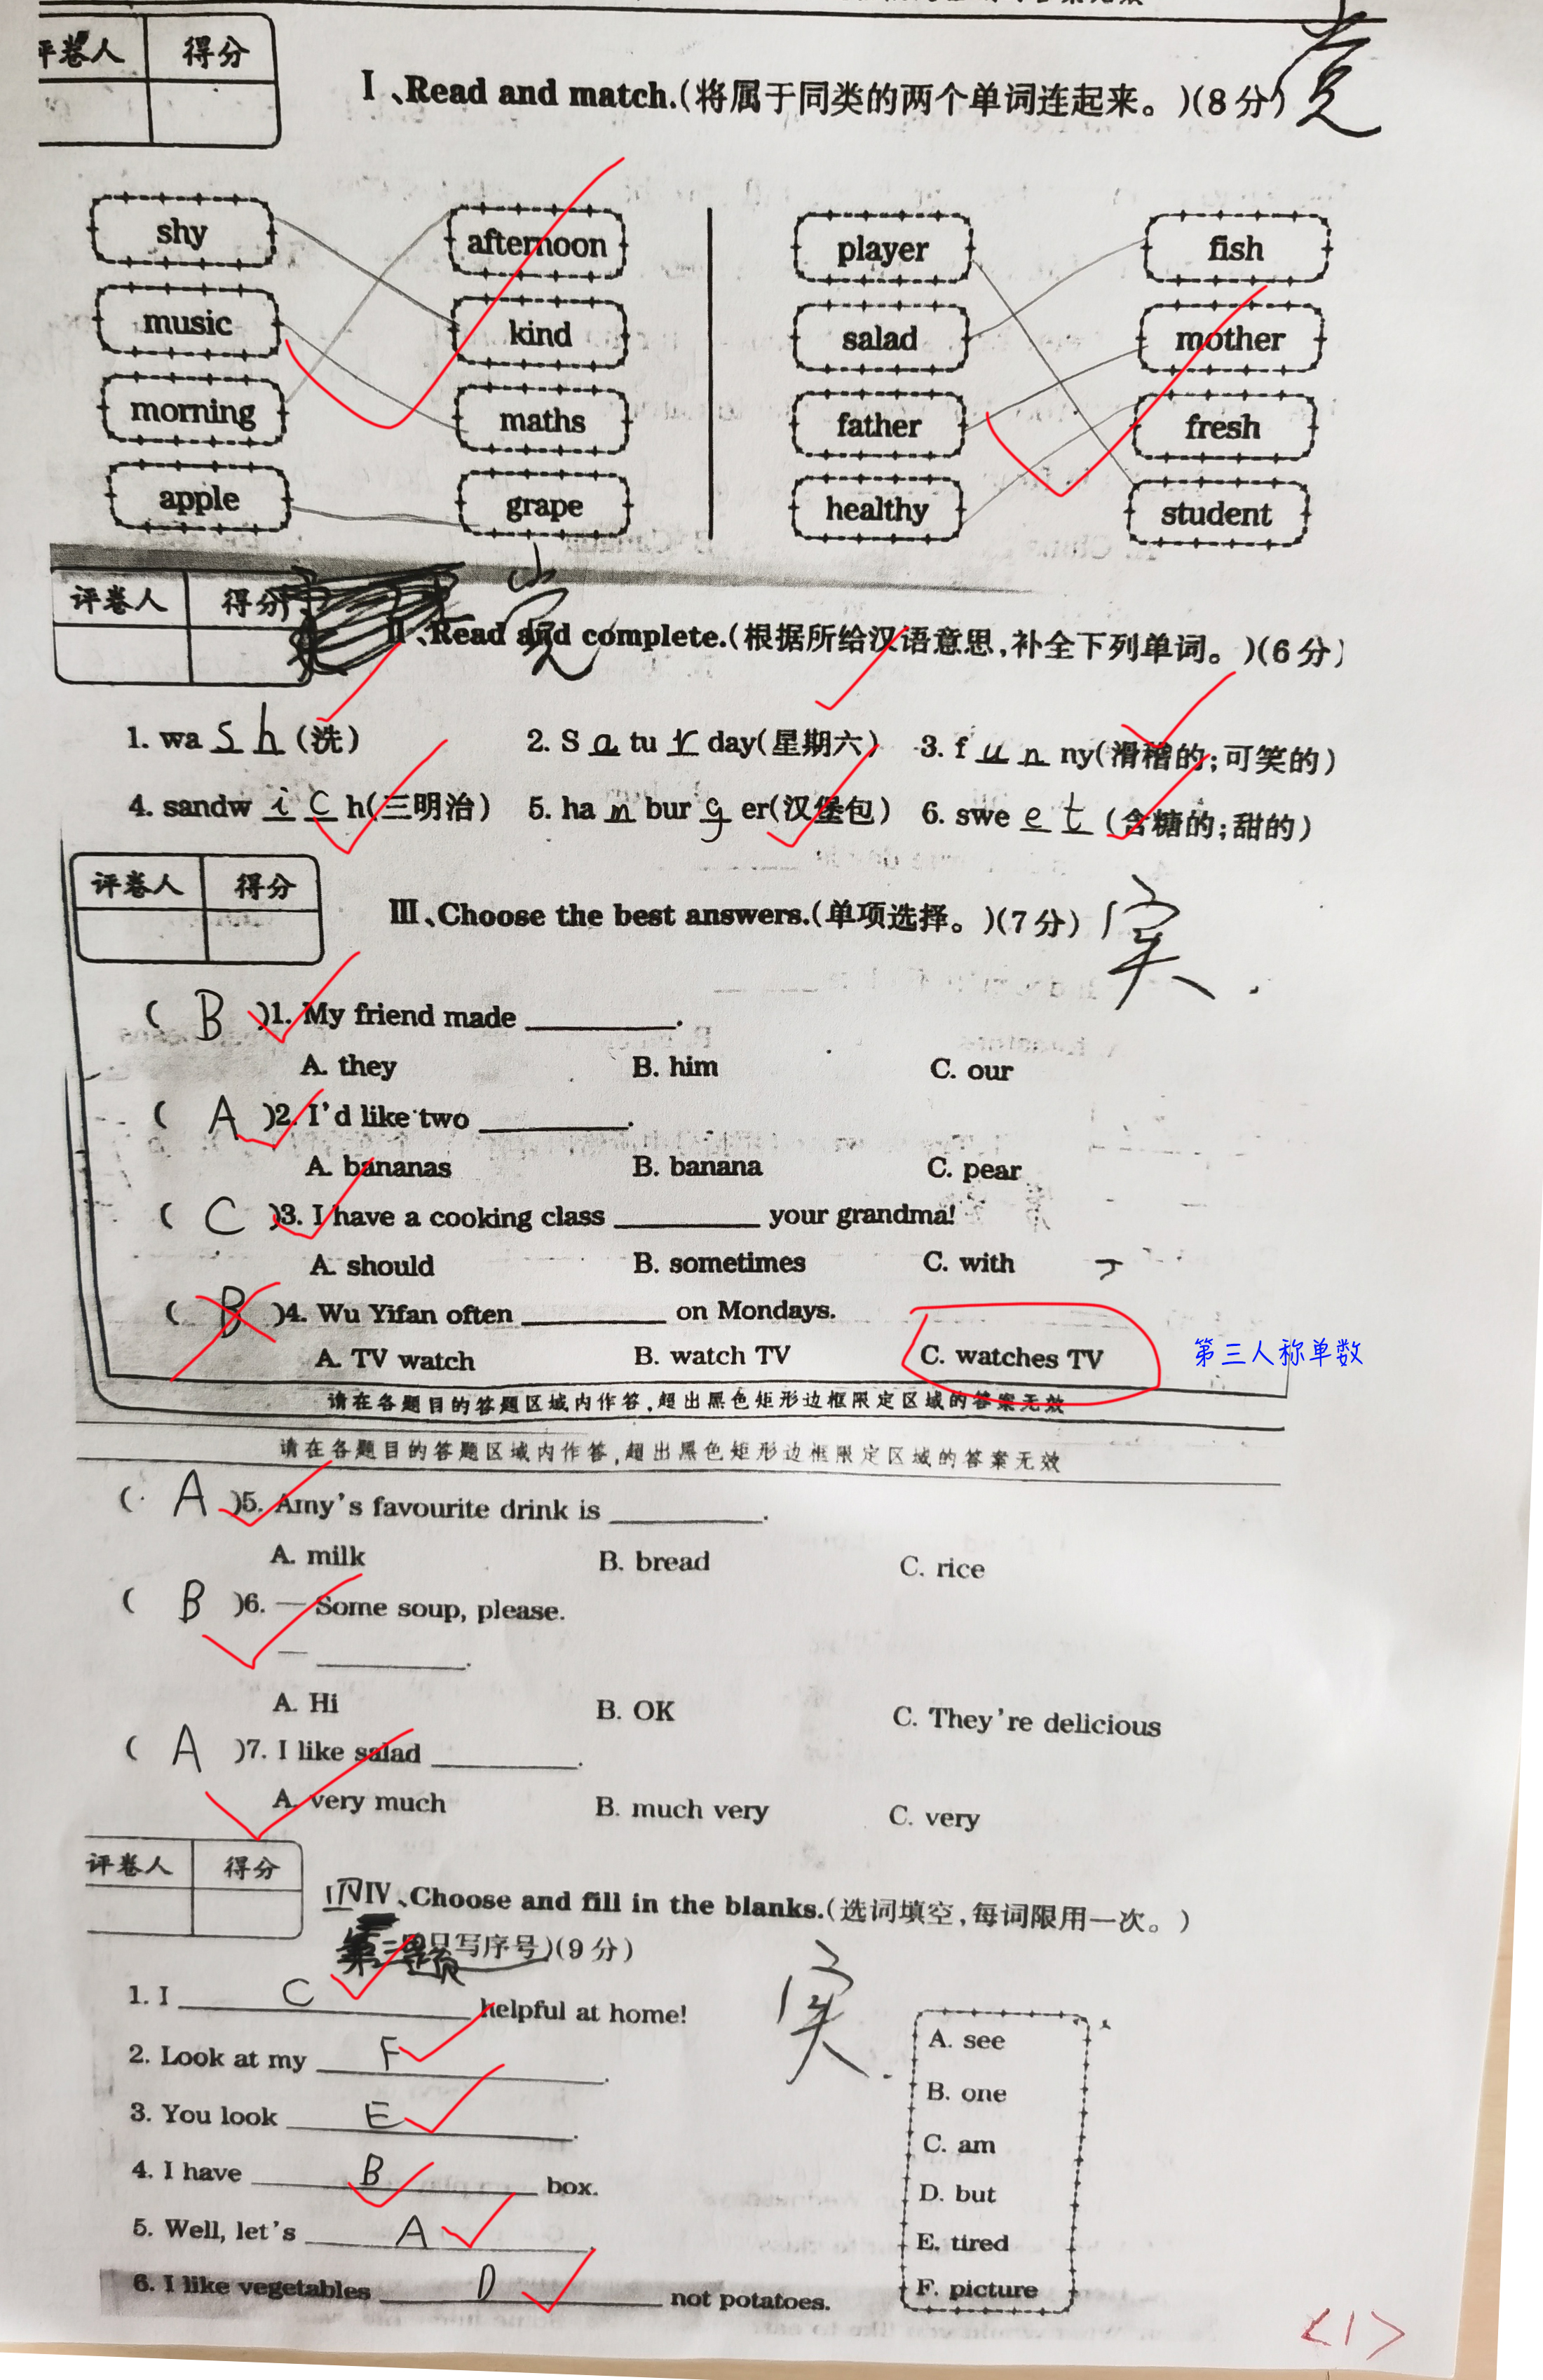 评卷人 得分
Ⅰ、Read and match.(将属于同类的两个单词连起来。)(8分)
shy afternoon player fish
music kind salad mother
morning maths father fresh
apple grape healthy student
评卷人 得分
Ⅱ、Read and complete.(根据所给汉语意思,补全下列单词。)(6分)
1. wa s h (洗) 2. S a tu r day(星期六) 3. f u n ny(滑稽的;可笑的)
4. sandw i c h(三明治) 5. ha m bur g er(汉堡包) 6. swe e t (含糖的;甜的)
评卷人 得分
Ⅲ、Choose the best answers.(单项选择。)(7分)
( B )1. My friend made ________.
A. they B. him C. our
( A )2. I'd like two ________.
A. bananas B. banana C. pear
( C )3. I have a cooking class ________ your grandma!
A. should B. sometimes C. with
( B )4. Wu Yifan often ________ on Mondays.
A. TV watch B. watch TV C. watches TV 第三人称单数
请在各题目的答题区域内作答,超出黑色矩形边框限定区域的答案无效
请在各题目的答题区域内作答,超出黑色矩形边框限定区域的答案无效
( A )5. Amy's favourite drink is ________.
A. milk B. bread C. rice
( B )6. — Some soup, please.
— ________.
A. Hi B. OK C. They're delicious
( A )7. I like salad ________.
A. very much B. much very C. very
评卷人 得分
Ⅳ、Choose and fill in the blanks.(选词填空,每词限用一次。)
只写序号)(9分)
1. I C helpful at home!
2. Look at my F.
3. You look E.
4. I have B box.
5. Well, let's A.
6. I like vegetables D not potatoes.
A. see
B. one
C. am
D. but
E. tired
F. picture
<1>